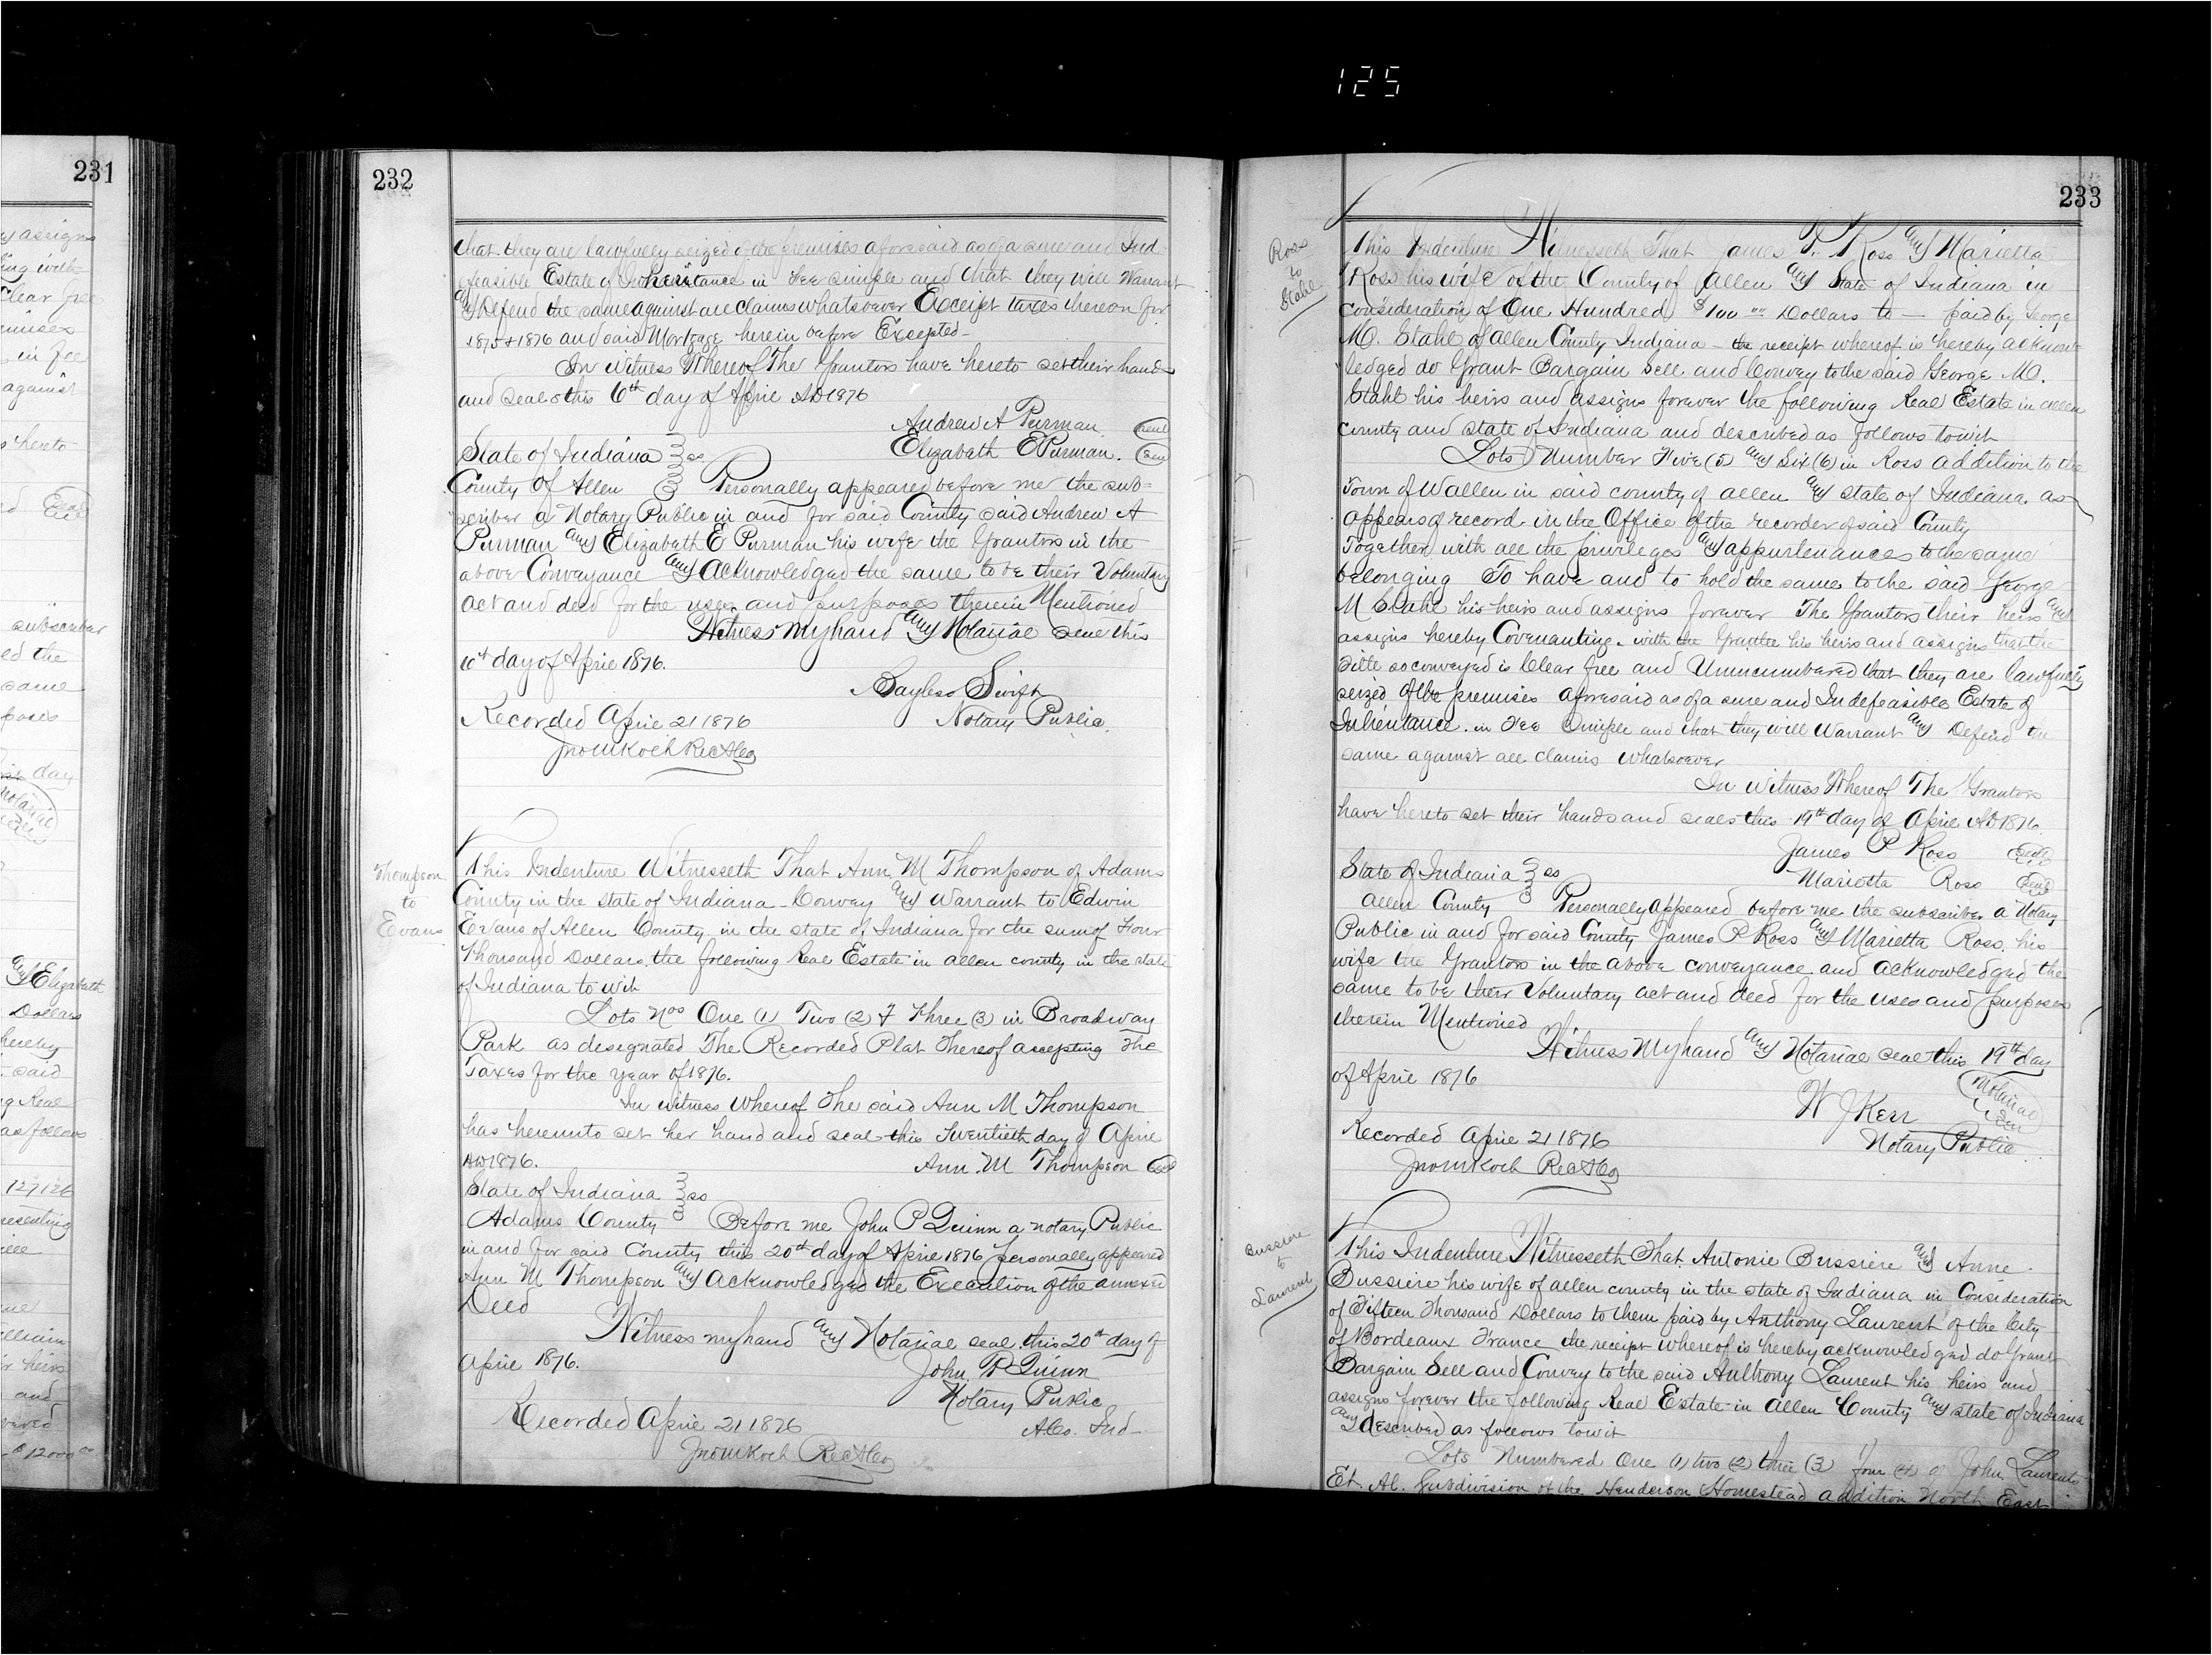 125
231
y assigns
ing with
Clear free
emises
in fee
against
s hereto
subscriber
ed the
same
poses
day
Notarial
Seal
any Elizabeth
Dollars
hereby
said
g Real
as follows
127126
resenting
ine
illiam
r heirs
and
$12000 00
232
that they are lawfully seized of the premises aforesaid as of a sure and Ind-
efeasible Estate of Inheritance in Fee simple and that they will Warrant
and Defend the same against all claims whatsoever Except taxes thereon for
1875 & 1876 and said Mortgage herein before Excepted-
In Witness Whereof The Grantors have hereto set their hands
and seals this 6th day of April AD 1876
Andrew A Purman Seal
Elizabeth E Purman. Seal
State of Indiana ss
County of Allen Personally appeared before me the sub-
scriber a Notary Public in and for said County said Andrew A
Purman and Elizabeth E Purman his wife the Grantors in the
above Conveyance and Acknowledged the same to be their Voluntary
Act and deed for the uses and purposes therein Mentioned
Witness my hand and Notarial seal this
10th day of April 1876.
Bayless Swift
Notary Public.
Recorded April 21 1876
Jno M Koch RecAco
Thompson
to
Evans
This Indenture Witnesseth That Ann M Thompson of Adams
County in the state of Indiana - Convey and Warrant to Edwin
Evans of Allen County in the state of Indiana for the sum of Four
Thousand Dollars the following Real Estate in Allen county in the state
of Indiana to wit
Lots Nos One (1) Two (2) & Three (3) in Broadway
Park as designated The Recorded Plat Thereof accepting the
Taxes for the year of 1876.
In witness whereof The said Ann M Thompson
has hereunto set her hand and seal this Twentieth day of April
AD 1876. Ann. M Thompson Seal
State of Indiana ss
Adams County Before me John P Quinn a notary Public
in and for said County this 20th day of April 1876 personally appeared
Ann M Thompson and Acknowledged the Execution of the annexed
Deed
Witness my hand and Notarial seal this 20th day of
April 1876. John P Quinn
Notary Public
A Co. Ind-
Recorded April 21 1876
Jno M Koch RecAco
233
Ross
to
Stahl
This Indenture Witnesseth That James P. Ross and Marietta
Ross his wife of the County of Allen and State of Indiana in
Consideration of One Hundred $100 00 Dollars to — paid by George
M. Stahl of Allen County Indiana - the receipt whereof is hereby acknow-
ledged do Grant Bargain Sell and Convey to the said George M.
Stahl his heirs and assigns forever the following Real Estate in Allen
County and state of Indiana and described as follows towit
Lots Number Five (5) and Six (6) in Ross addition to the
Town of Wallen in said county of Allen and state of Indiana as
appears of record in the Office of the recorder of said County
Together with all the privileges and appurtenances to the same
belonging To have and to hold the same to the said George
M Stahl his heirs and assigns forever The Grantors their heirs and
assigns hereby Covenanting with the Grantee his heirs and assigns that the
Title so conveyed is Clear free and Unincumbered that they are lawfully
seized of the premises aforesaid as of a sure and Indefeasible Estate of
Inheritance in Fee Simple and that they will Warrant and Defend the
same against all claims whatsoever
In Witness Whereof The Grantors
have hereto set their hands and seals this 19th day of April AD 1876
James P Ross Seal
Marietta Ross Seal
State of Indiana ss
Allen County Personally Appeared before me the subscriber a Notary
Public in and for said County James P Ross and Marietta Ross his
wife the Grantors in the above conveyance and acknowledged the
same to be their Voluntary act and deed for the uses and purposes
therein Mentioned
Witness My hand and Notarial seal this 19th day
of April 1876
W J Kerr Notarial Seal
Notary Public
Recorded April 21 1876
Jno M Koch RecAco
Bussiere
to
Laurent
This Indenture Witnesseth That Antonie Bussiere and Anne
Bussiere his wife of Allen county in the state of Indiana in Consideration
of Fifteen Thousand Dollars to them paid by Anthony Laurent of the City
of Bordeaux France the receipt whereof is hereby acknowledged do Grant
Bargain Sell and Convey to the said Anthony Laurent his heirs and
assigns forever the following Real Estate in Allen County and state of Indiana
and described as follows towit
Lots Numbered One (1) two (2) three (3) four (4) of John Laurents
Et. Al. Subdivision of the Henderson Homestead addition North East